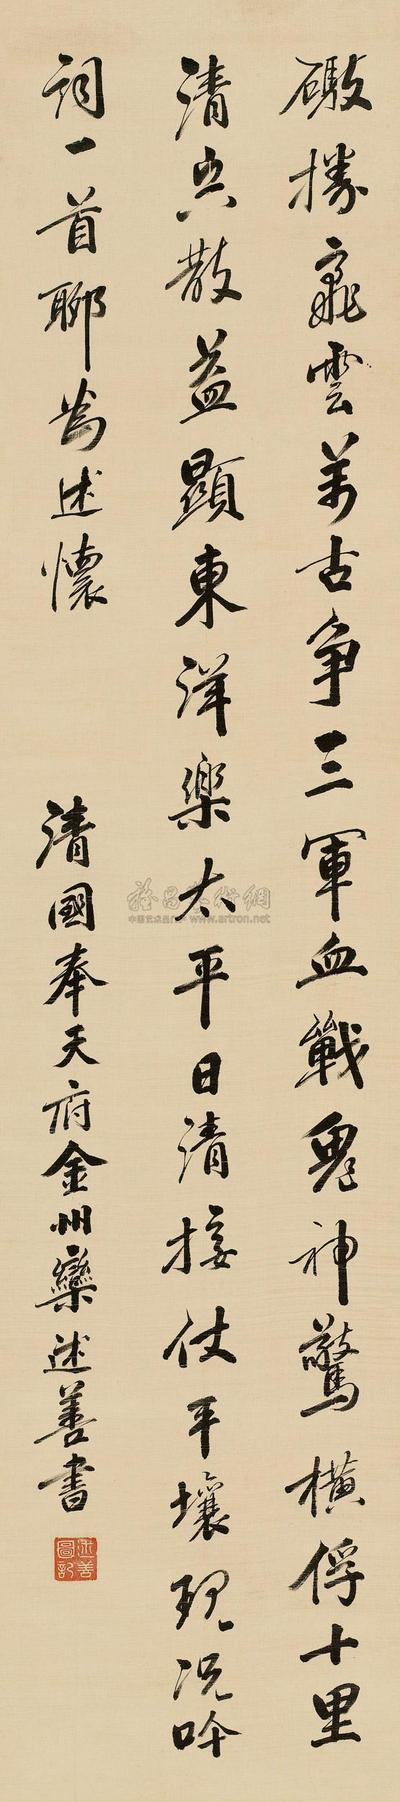 雲萬古爭三軍血戰鬼神驚橫俘十里
清兵散益顯東洋樂太平日清接仗平壤現況吟
詞一首聊為述懷
清國奉天府金州欒述善書
述善圖記
雅昌藝術網
www.artron.net